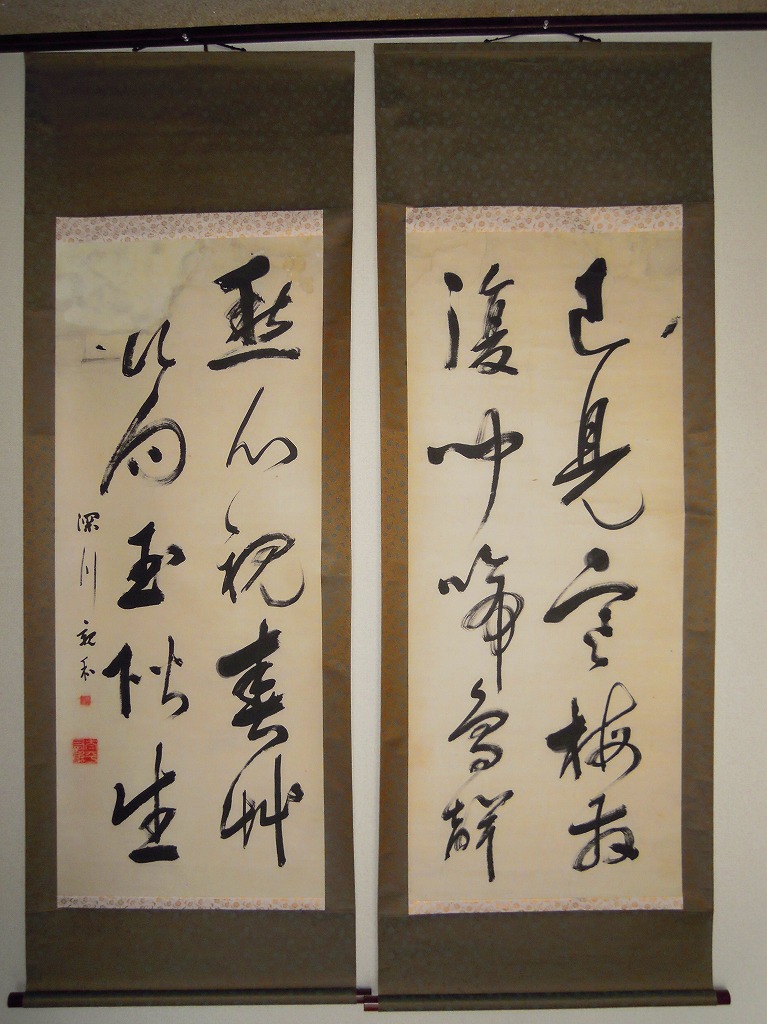 已見寒梅發
復聞啼鳥聲
愁心視春艸
向玉階生
深川親和